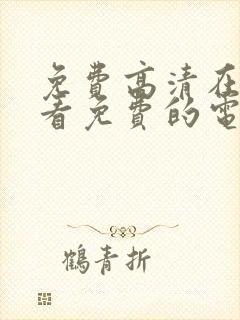 免費高清在
看免費的電
鶴青折